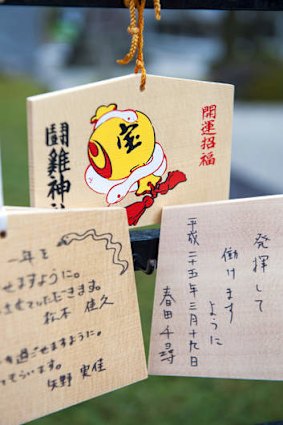 開運招福
宝
闘雞神
一年を
せますように。
させていただきます。
松本 佳久
を過ごせますように。
矢野 実佳
発揮して
働けます
ように
平成二十五年三月十九日
春田千尋